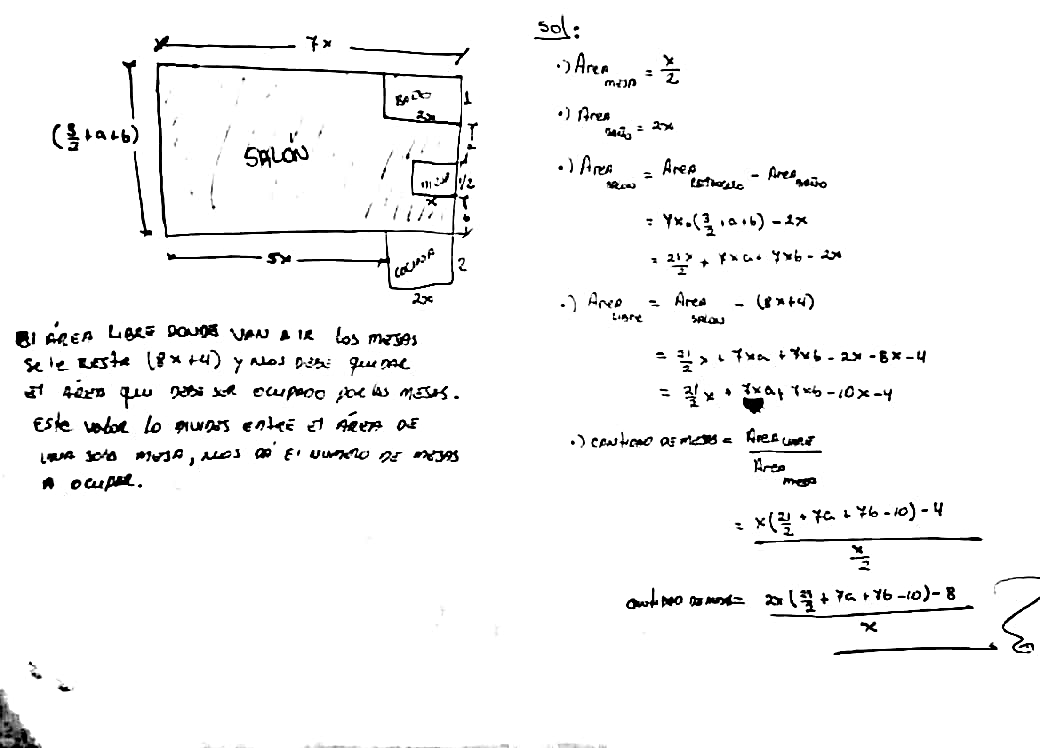 7x
BAÑO
1
2x
(3/2 + a + b)
SALÓN
MESA
1/2
x
b
5x
COCINA
2
2x
El ÁREA LIBRE DONDE VAN A IR los MESAS
se le RESTA (8x+4) y NOS DEBE QUEDAR
El ÁREA QUE DEBE SER OCUPADO POR las MESAS.
Este valor lo DIVIDES ENTRE El ÁREA DE
UNA SOLA MESA, NOS DÁ El NUMERO DE MESAS
A OCUPAR.
Sol:
•) Area MESA = x/2
•) Area BAÑO = 2x
•) Area SALON = Area RECTANGULO - Area BAÑO
= 7x•(3/2 + a + b) - 2x
= 21x/2 + 7xa + 7xb - 2x
•) Area LIBRE = Area SALON - (8x+4)
= 21/2 x + 7xa + 7xb - 2x - 8x - 4
= 21/2 x + 7xa + 7xb - 10x - 4
•) CANTIDAD DE MESAS = Area LIBRE / Area MESA
= x(21/2 + 7a + 7b - 10) - 4 / x/2
CANTIDAD DE MESAS = 2x(21/2 + 7a + 7b - 10) - 8 / x